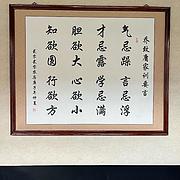 乔致庸家训要言
气忌躁言忌浮
才忌露学忌满
胆欲大心欲小
知欲圆行欲方